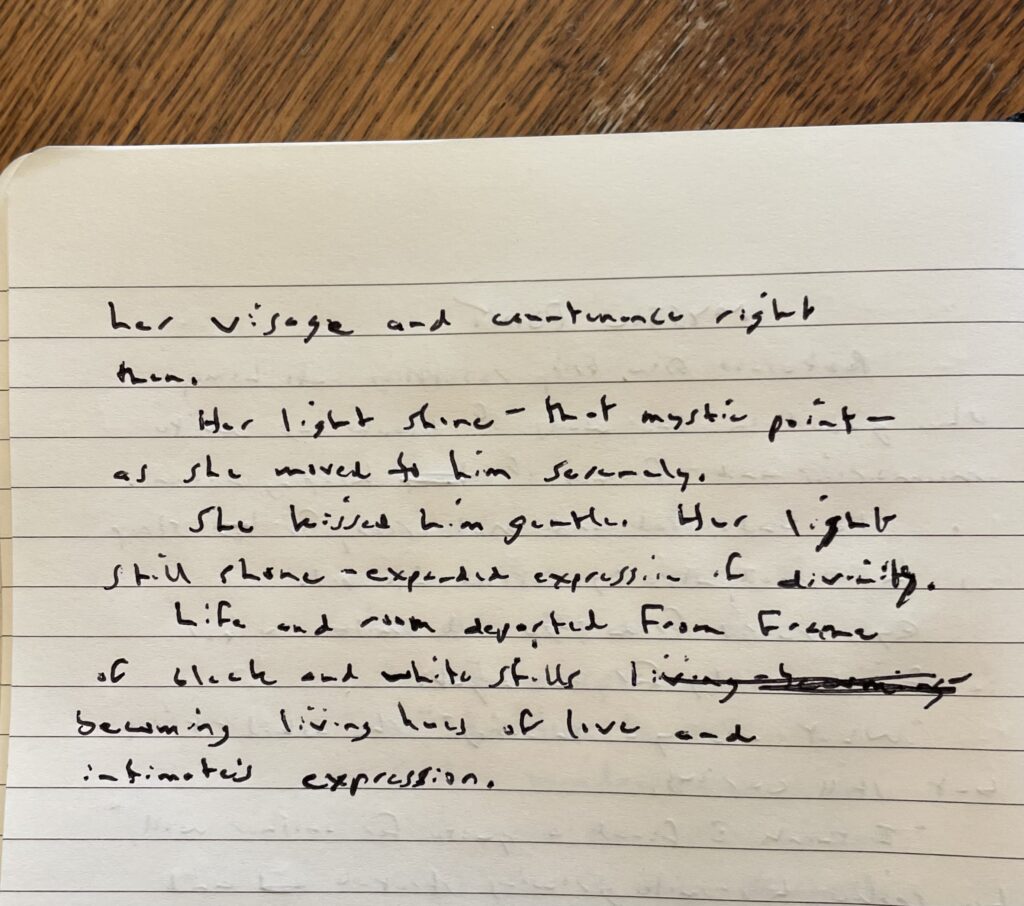 her visage and countenance right
then.
Her light shone - that mystic point -
as she moved to him serenely.
She kissed him gentle. Her light
still shone - expanded expression of divinity.
Life and room departed from Frame
of black and white stills living becoming
becoming living hues of love and
intimate's expression.